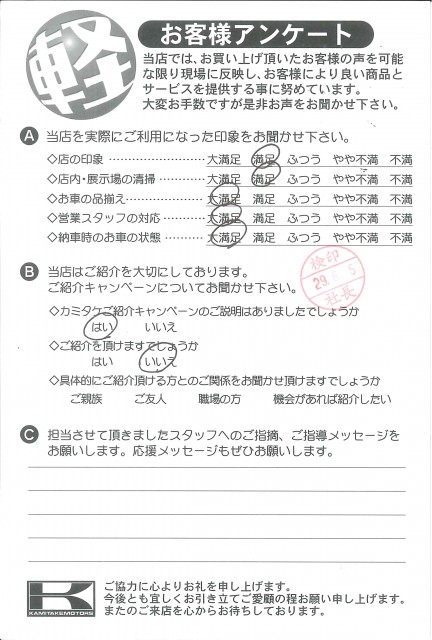 軽
お客様アンケート
当店では、お買い上げ頂いたお客様の声を可能
な限り現場に反映し、お客様により良い商品と
サービスを提供する事に努めています。
大変お手数ですが是非お声をお聞かせ下さい。
A 当店を実際にご利用になった印象をお聞かせ下さい。
◇店の印象 ………………… 大満足 満足 ふつう やや不満 不満
◇店内・展示場の清掃 ………… 大満足 満足 ふつう やや不満 不満
◇お車の品揃え ……………… 大満足 満足 ふつう やや不満 不満
◇営業スタッフの対応 ………… 大満足 満足 ふつう やや不満 不満
◇納車時のお車の状態 ………… 大満足 満足 ふつう やや不満 不満
B 当店はご紹介を大切にしております。
ご紹介キャンペーンについてお聞かせ下さい。
検印
29.
5
社長
◇カミタケご紹介キャンペーンのご説明はありましたでしょうか
はい いいえ
◇ご紹介を頂けますでしょうか
はい いいえ
◇具体的にご紹介頂ける方とのご関係をお聞かせ頂けますでしょうか
ご親族 ご友人 職場の方 機会があれば紹介したい
C 担当させて頂きましたスタッフへのご指摘、ご指導メッセージを
お願いします。応援メッセージもぜひお願いします。
K
KAMITAKEMOTORS
ご協力に心よりお礼を申し上げます。
今後とも宜しくお引き立てご愛顧の程お願い申し上げます。
またのご来店を心からお待ちしております。